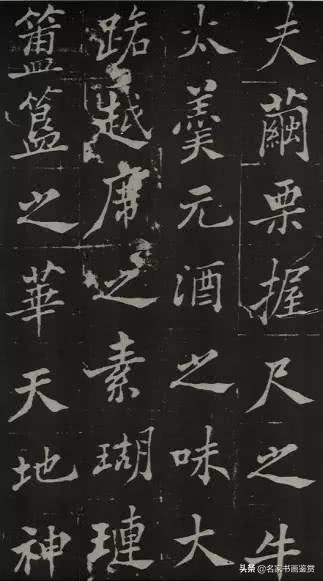 夫繭栗握尺之牛
太羹元酒之味大
路越席之素瑚璉
簠簋之華天地神
头条 @名家书画鉴赏